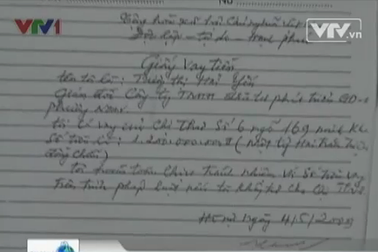 VTV1
VTV
VTV.vn
Cộng hòa xã hội Chủ nghĩa Việt
Độc lập - tự do - Hạnh phúc
Giấy vay tiền
tên tôi là: Thị Hải Yến
Giám đốc Công ty TNHH đầu tư phát triển GD-
phương Nam
tôi có vay của Chị Thư Số 6 ngõ 169 minh Kh
Số tiền là: 1.200.000.000đ (một tỷ Hai Trăm Triệu
đồng chẵn)
tôi hoàn toàn Chịu Trách nhiệm về Số tiền vay
Trên Trước pháp luật nếu tôi không trả cho Chị Thư
ngày 4/5/2009